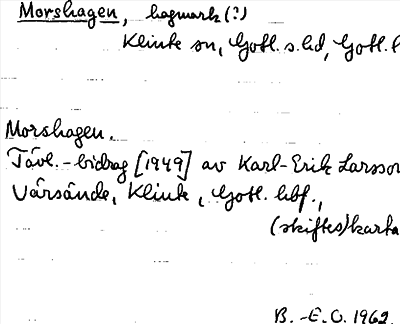 Morshagen, hagmark (?)
Klinte sn, Gotl. s. hd, Gotl. l
Morshagen.
Tävl.-bidrag [1949] av Karl-Erik Larsson
Vårsände, Klinte, Gotl. hbf.,
(skiftes)karta
B.-E.O. 1962.